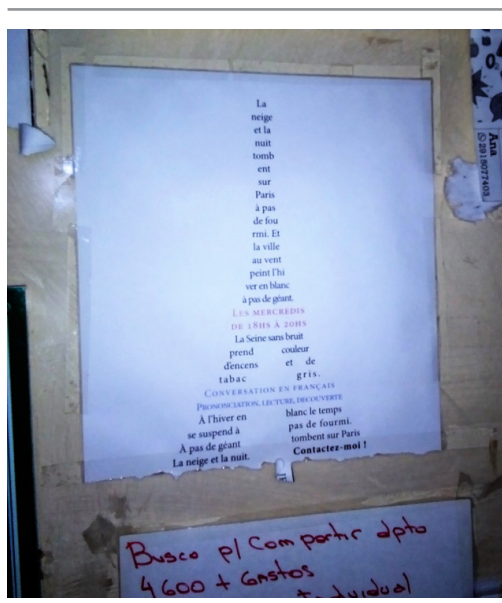 La
neige
et la
nuit
tomb
ent
sur
Paris
à pas
de fou
rmi. Et
la ville
au vent
peint l'hi
ver en blanc
à pas de géant.
LES MERCREDIS
DE 18HS À 20HS
La Seine sans bruit
prend couleur
d'encens et de
tabac gris.
CONVERSATION EN FRANÇAIS
PRONONCIATION, LECTURE, DECOUVERTE
À l'hiver en blanc le temps
se suspend à pas de fourmi.
À pas de géant tombent sur Paris
La neige et la nuit. Contactez-moi !
Ana
2916077403
Busco p/ Compartir dpto
4600 + Gastos